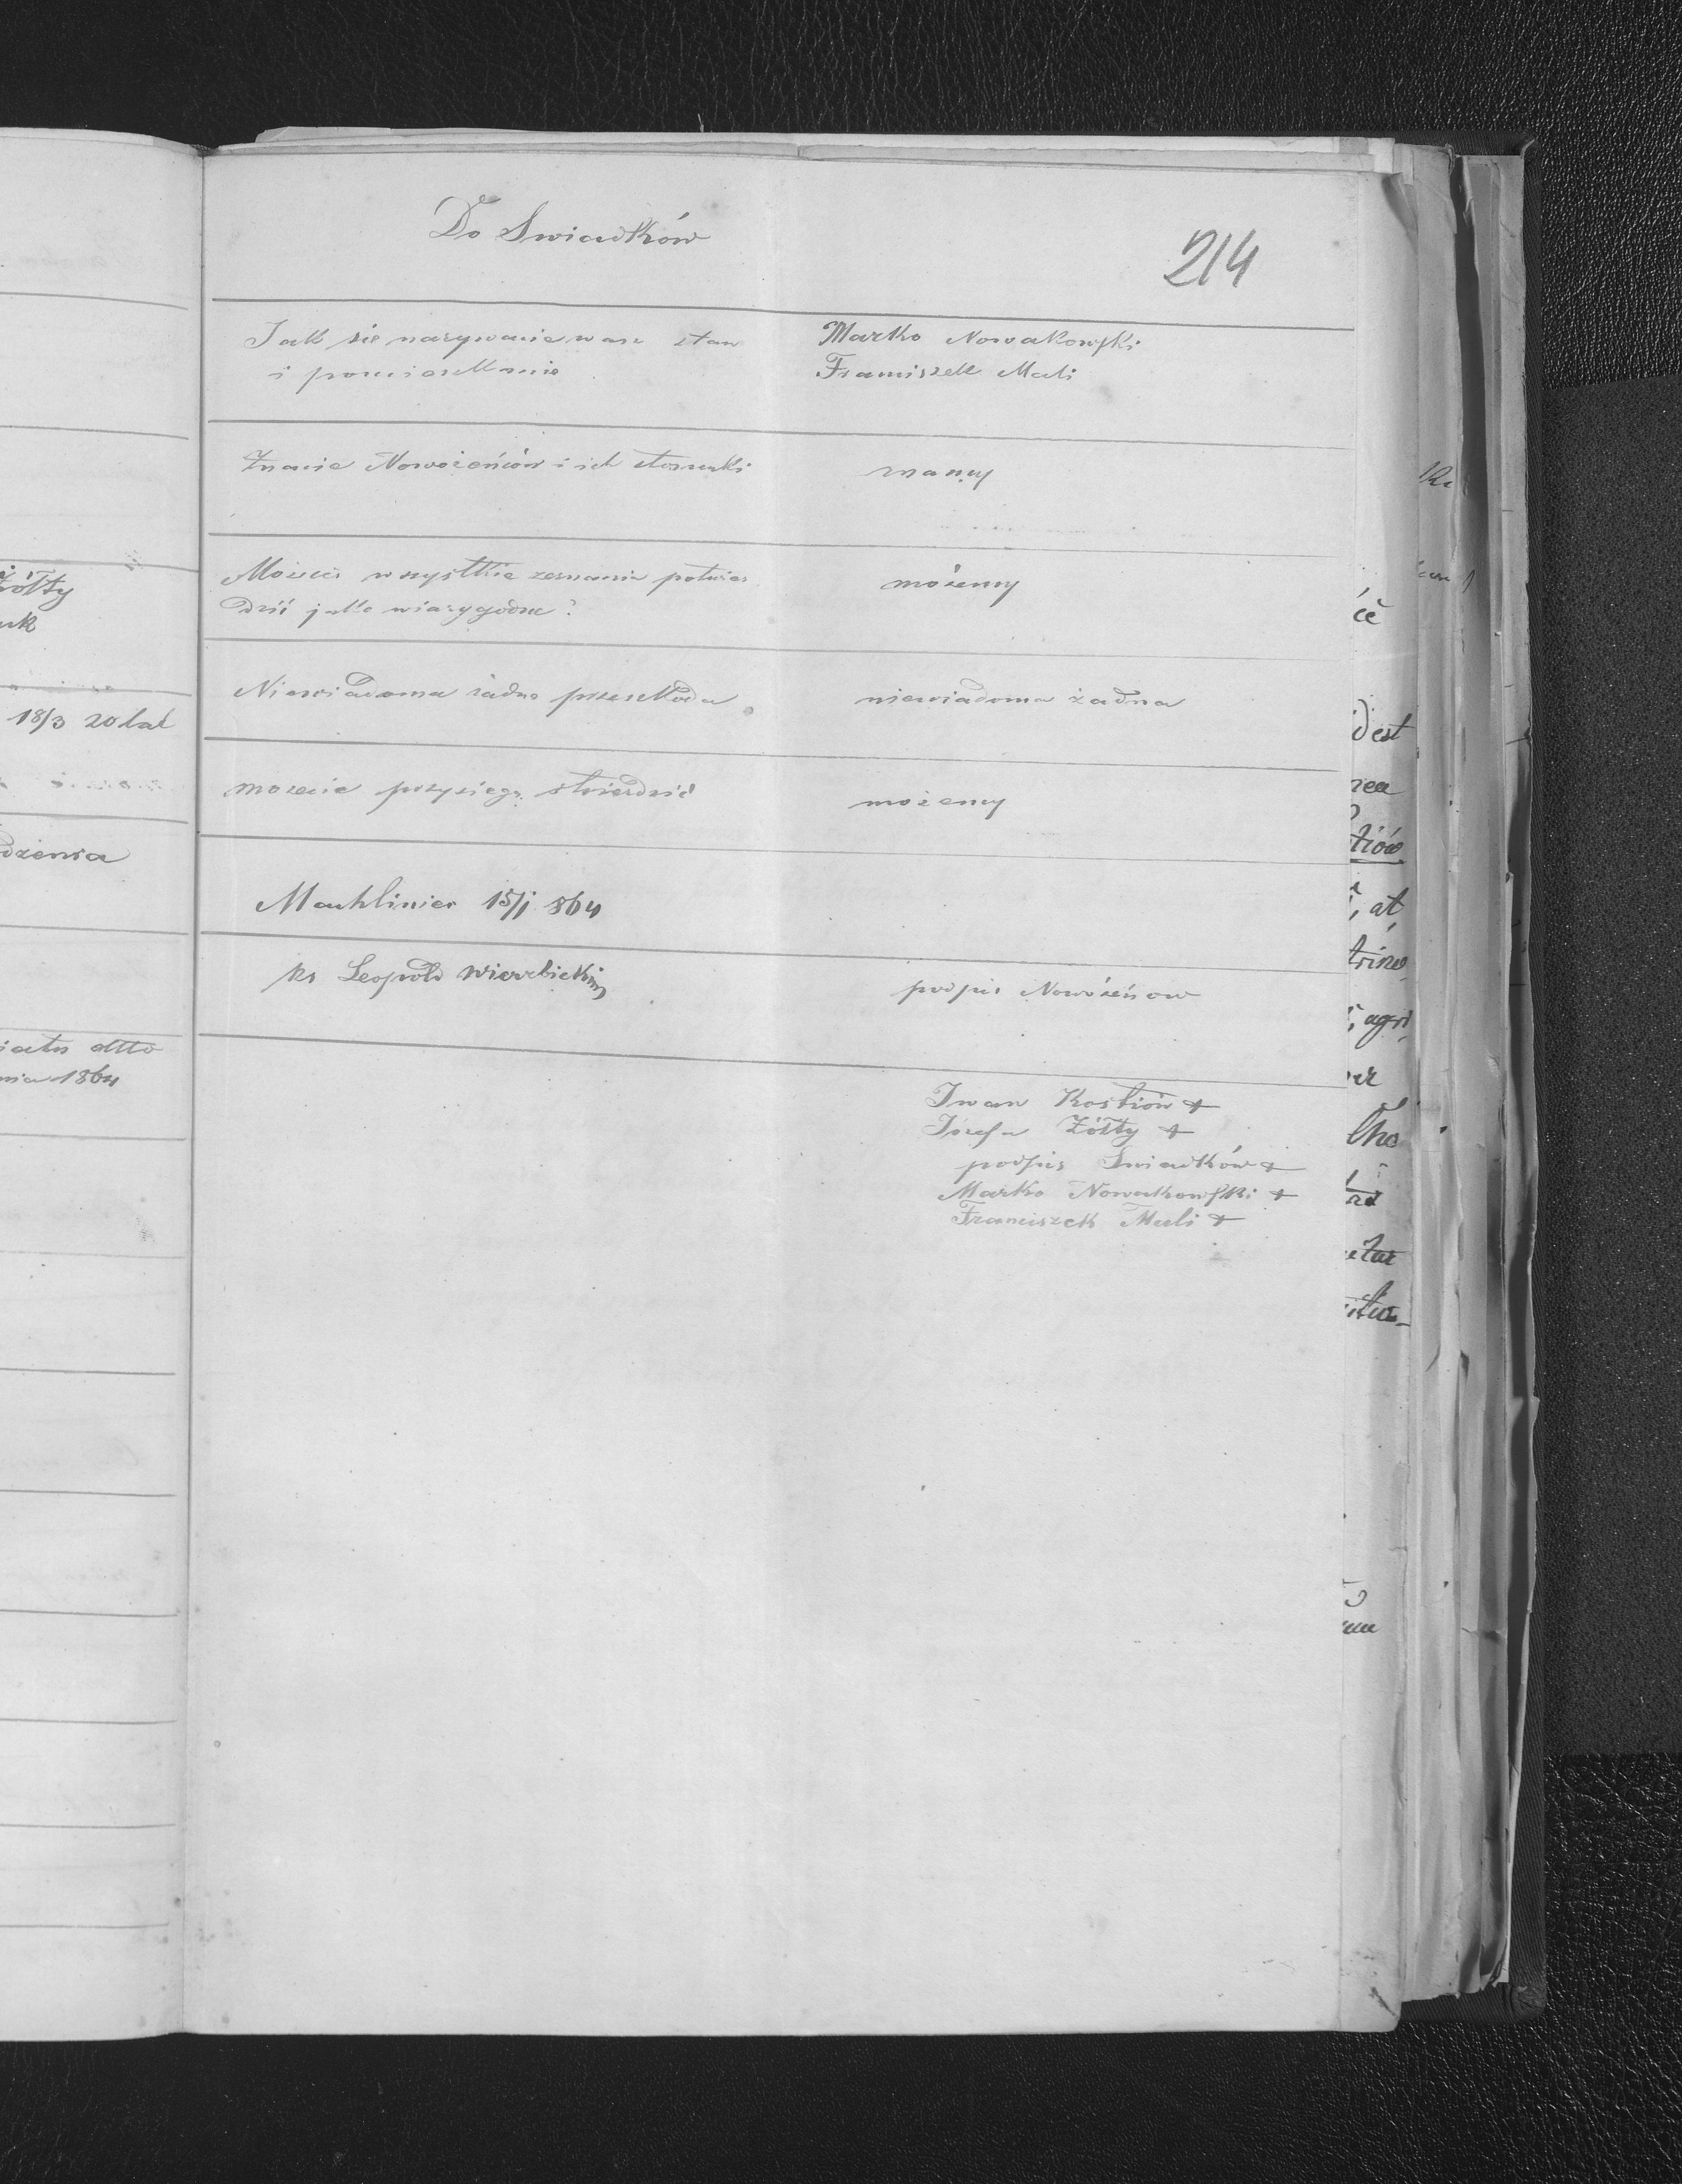 Do Swiadków
214
Jak sie nazywacie wasz stan
i pomieszkanie
Marko Nowakowski
Franciszek Mali
Znacie Nowożeńców i ich stosunki
znamy
Możecie wszystkie zeznania potwier
dzić jako wiarygodne?
możemy
Niewiadoma żadna przeszkoda
niewiadoma żadna
możecie przysięgą stwierdzić
możemy
Machliniec 15/1 864
ks Leopold Wierzbicki
podpis Nowożeńcow
Iwan Kostiów +
Józefa Żółty +
podpis Swiadków +
Marko Nowakowski +
Franciszek Mali +
żółty
18/3 20 lat
dzenia
1864